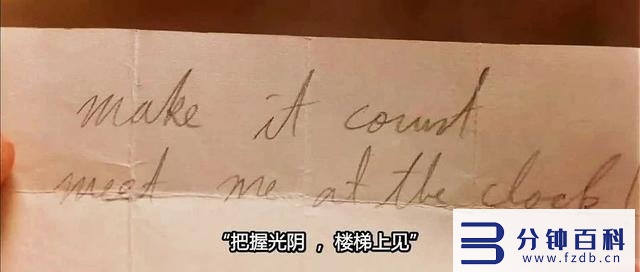 make it count
meet me at the clock!
“把握光阴 ，楼梯上见”
3 分钟百科
www.fzdb.cn